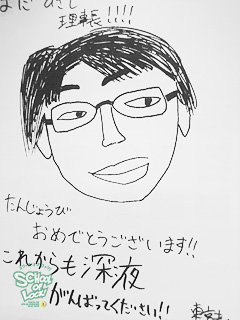 まだ ひさし
理事長!!!!
たんじょうび
おめでとうございます!!
これからも深液
がんばってください!!
東京
SCHOOL
OF
LOCK!